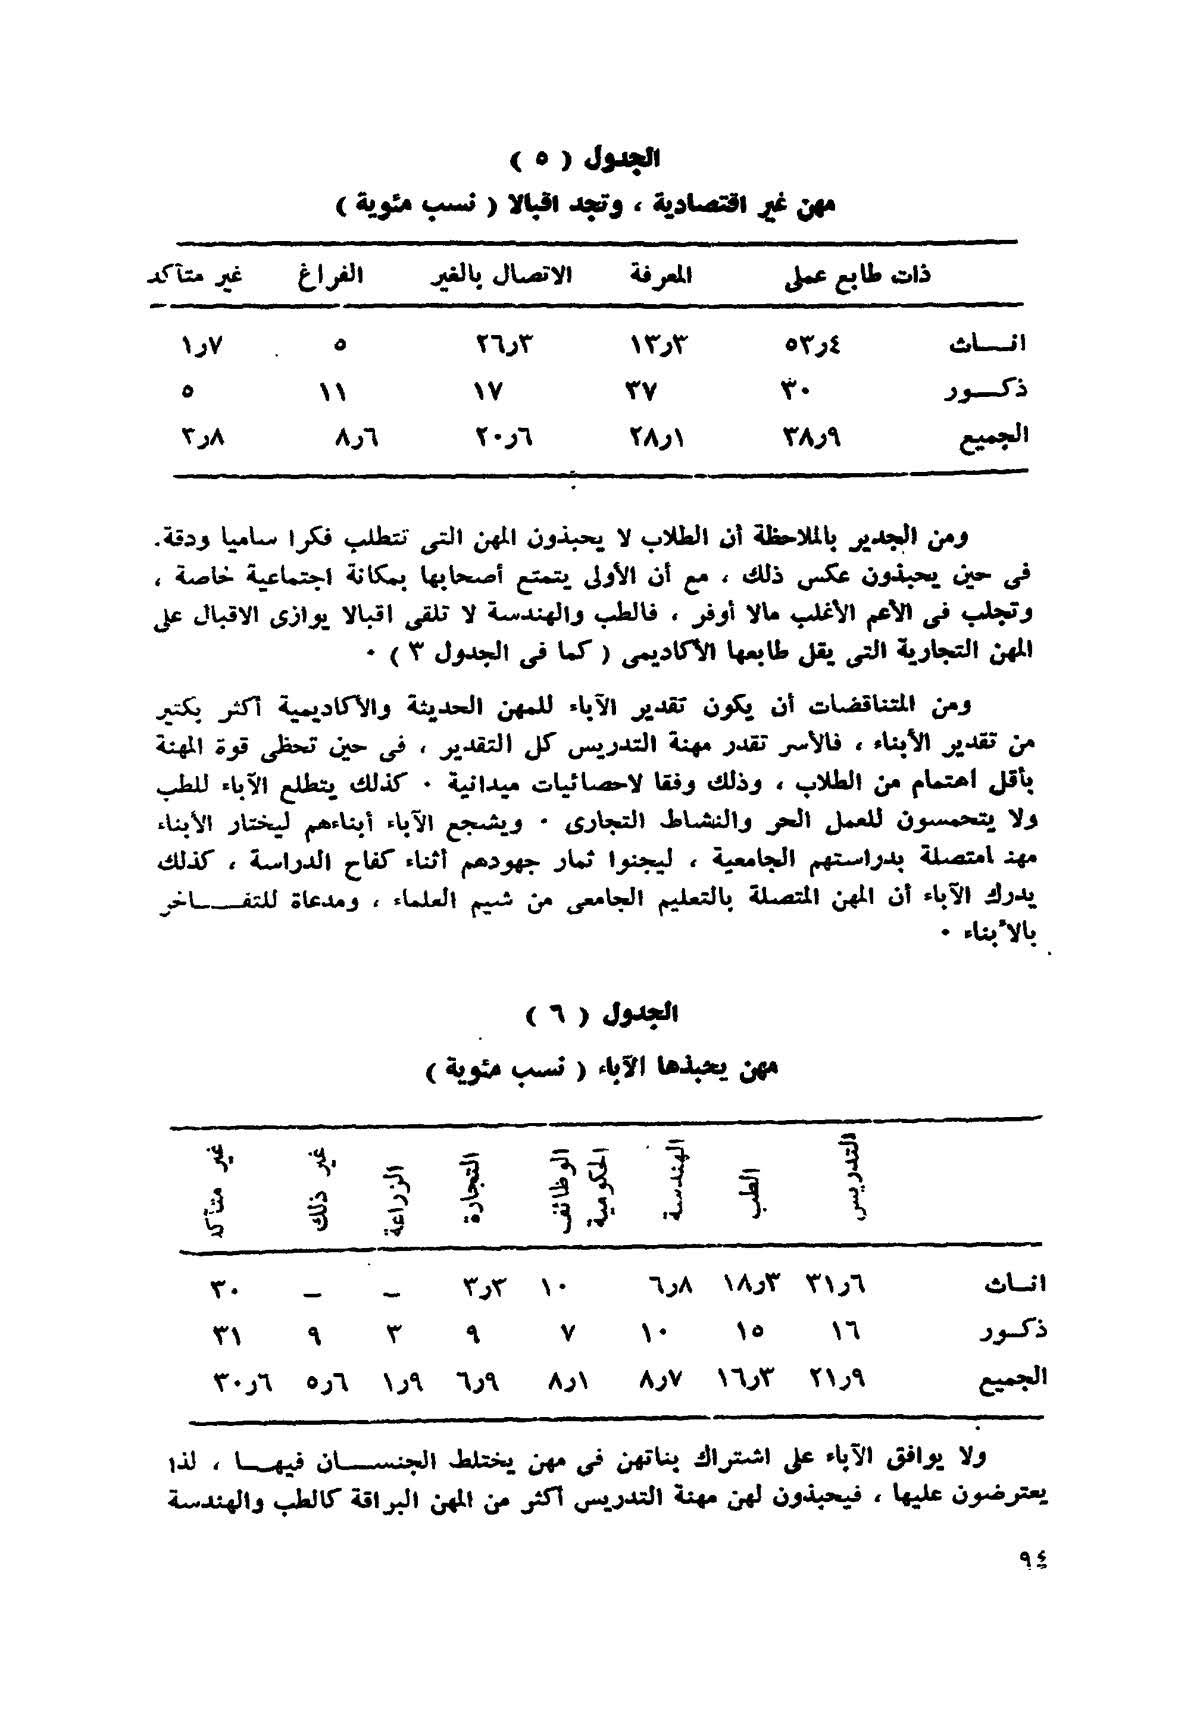 الجدول ( ٥ )
مهن غير اقتصادية ، وتجد اقبالا ( نسب مئوية )
ذات طابع عملى المعرفة الاتصال بالغير الفراغ غير متأكد
انــاث ٤ر٥٣ ٣ر١٣ ٣ر٢٦ ٥ ٧ر١
ذكــور ٣٠ ٣٧ ١٧ ١١ ٥
الجميع ٩ر٣٨ ١ر٢٨ ٦ر٢٠ ٦ر٨ ٨ر٣
ومن الجدير بالملاحظة أن الطلاب لا يحبذون المهن التى تتطلب فكرا ساميا ودقة.
فى حين يحبذون عكس ذلك ، مع أن الأولى يتمتع أصحابها بمكانة اجتماعية خاصة ،
وتجلب فى الأعم الأغلب مالا أوفر ، فالطب والهندسة لا تلقى اقبالا يوازى الاقبال على
المهن التجارية التى يقل طابعها الأكاديمى ( كما فى الجدول ٣ ) ٠
ومن المتناقضات أن يكون تقدير الآباء للمهن الحديثة والأكاديمية أكثر بكثير
من تقدير الأبناء ، فالأسر تقدر مهنة التدريس كل التقدير ، فى حين تحظى قوة المهنة
بأقل اهتمام من الطلاب ، وذلك وفقا لاحصائيات ميدانية ٠ كذلك يتطلع الآباء للطب
ولا يتحمسون للعمل الحر والنشاط التجارى ٠ ويشجع الآباء أبناءهم ليختار الأبناء
مهنا متصلة بدراستهم الجامعية ، ليجنوا ثمار جهودهم أثناء كفاح الدراسة ، كذلك
يدرك الآباء أن المهن المتصلة بالتعليم الجامعى من شيم العلماء ، ومدعاة للتفــاخر
بالأبناء ٠
الجدول ( ٦ )
مهن يحبذها الآباء ( نسب مئوية )
التدريس الطب الهندسة الوظائف الحكومية التجارة الزراعة غير ذلك غير متأكد
انـاث ٦ر٣١ ٣ر١٨ ٨ر٦ ١٠ ٣ر٣ – – ٣٠
ذكـور ١٦ ١٥ ١٠ ٧ ٩ ٣ ٩ ٣١
الجميع ٩ر٢١ ٣ر١٦ ٧ر٨ ١ر٨ ٩ر٦ ٩ر١ ٦ر٥ ٦ر٣٠
ولا يوافق الآباء على اشتراك بناتهن فى مهن يختلط الجنســان فيهــا ، لذا
يعترضون عليها ، فيحبذون لهن مهنة التدريس أكثر من المهن البراقة كالطب والهندسة
٩٤